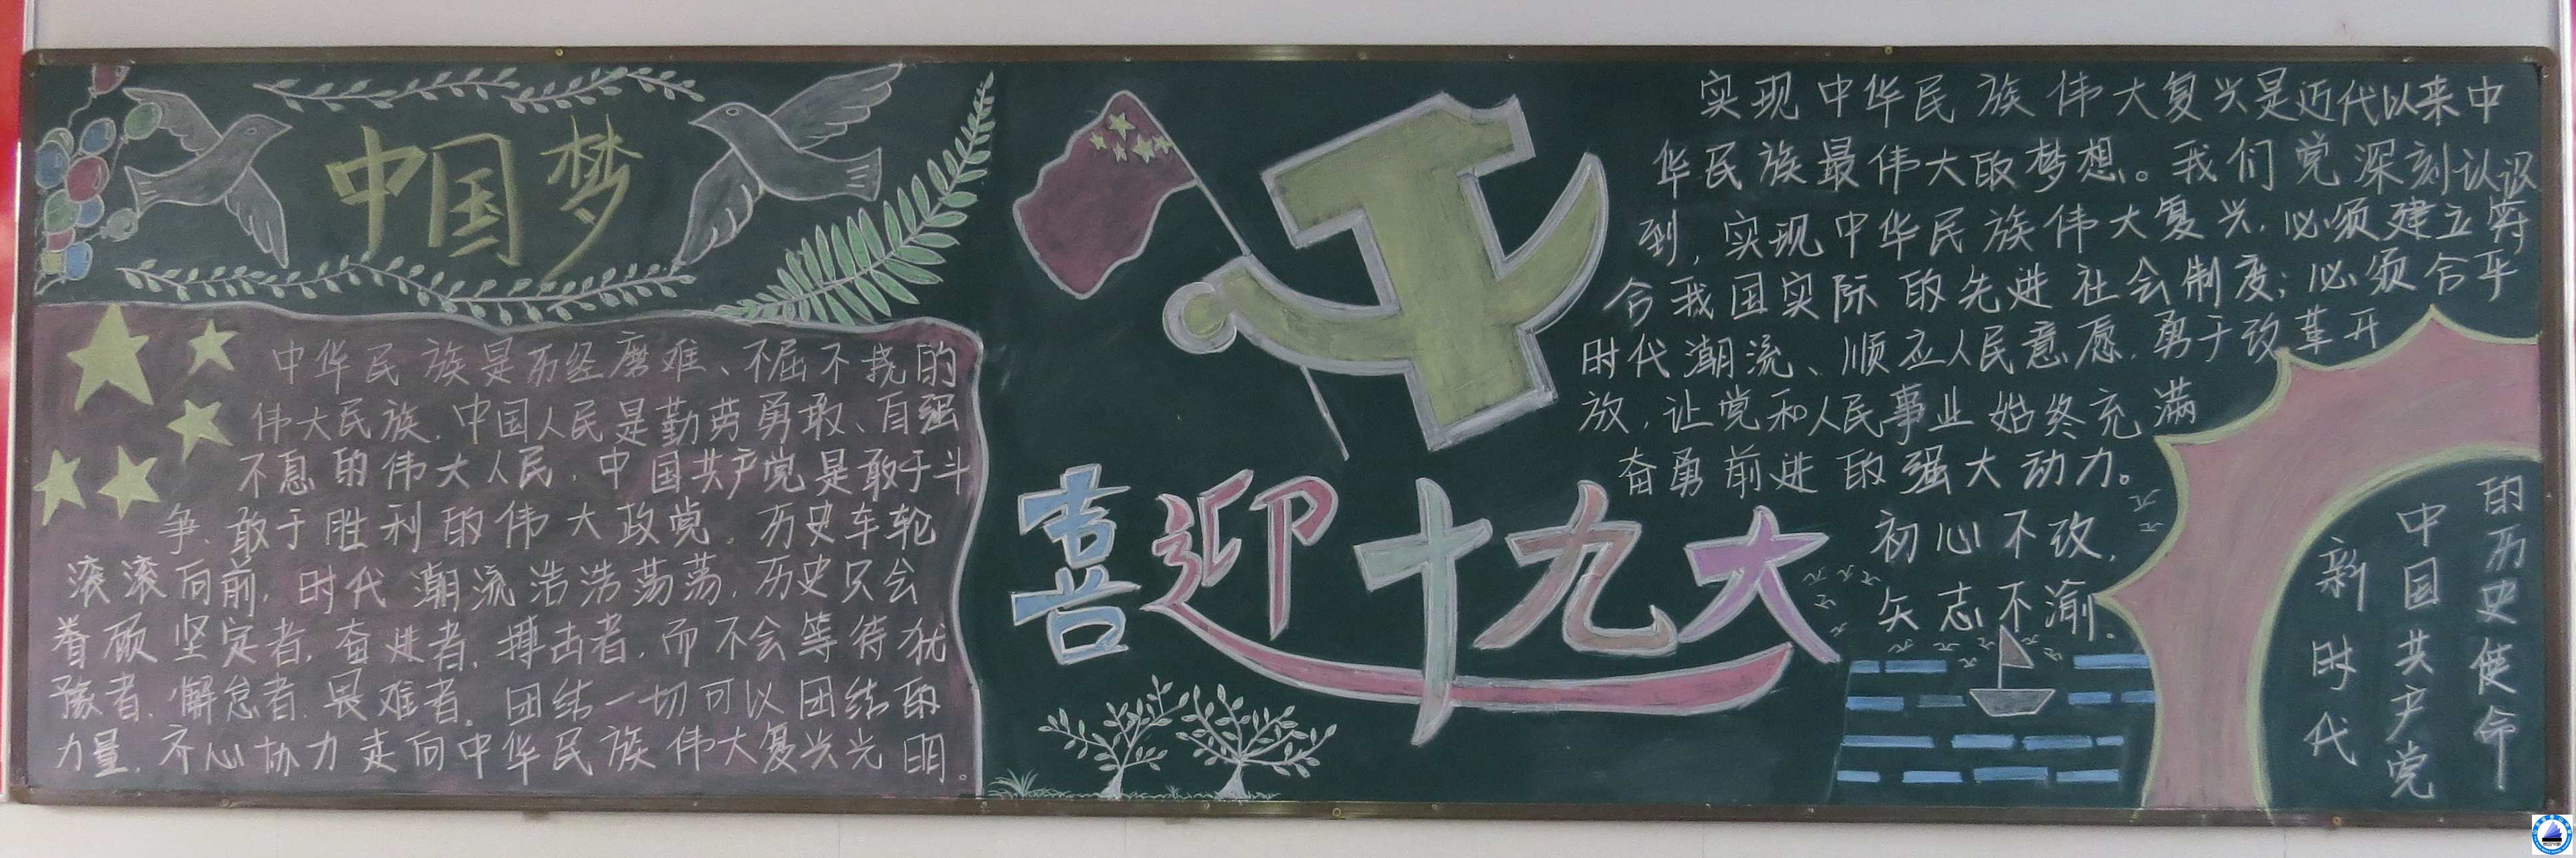 中国梦
中华民族是历经磨难、不屈不挠的
伟大民族,中国人民是勤劳勇敢、自强
不息的伟大人民,中国共产党是敢于斗
争、敢于胜利的伟大政党。历史车轮
滚滚向前,时代潮流浩浩荡荡,历史只会
眷顾坚定者,奋进者,搏击者,而不会等待犹
豫者、懈怠者、畏难者。团结一切可以团结的
力量,齐心协力走向中华民族伟大复兴光明。
喜迎十九大
实现中华民族伟大复兴是近代以来中
华民族最伟大的梦想。我们党深刻认识
到,实现中华民族伟大复兴,必须建立符
合我国实际的先进社会制度;必须合乎
时代潮流、顺应人民意愿,勇于改革开
放,让党和人民事业始终充满
奋勇前进的强大动力。
初心不改,
矢志不渝.
新时代
中国共产党
的历史使命